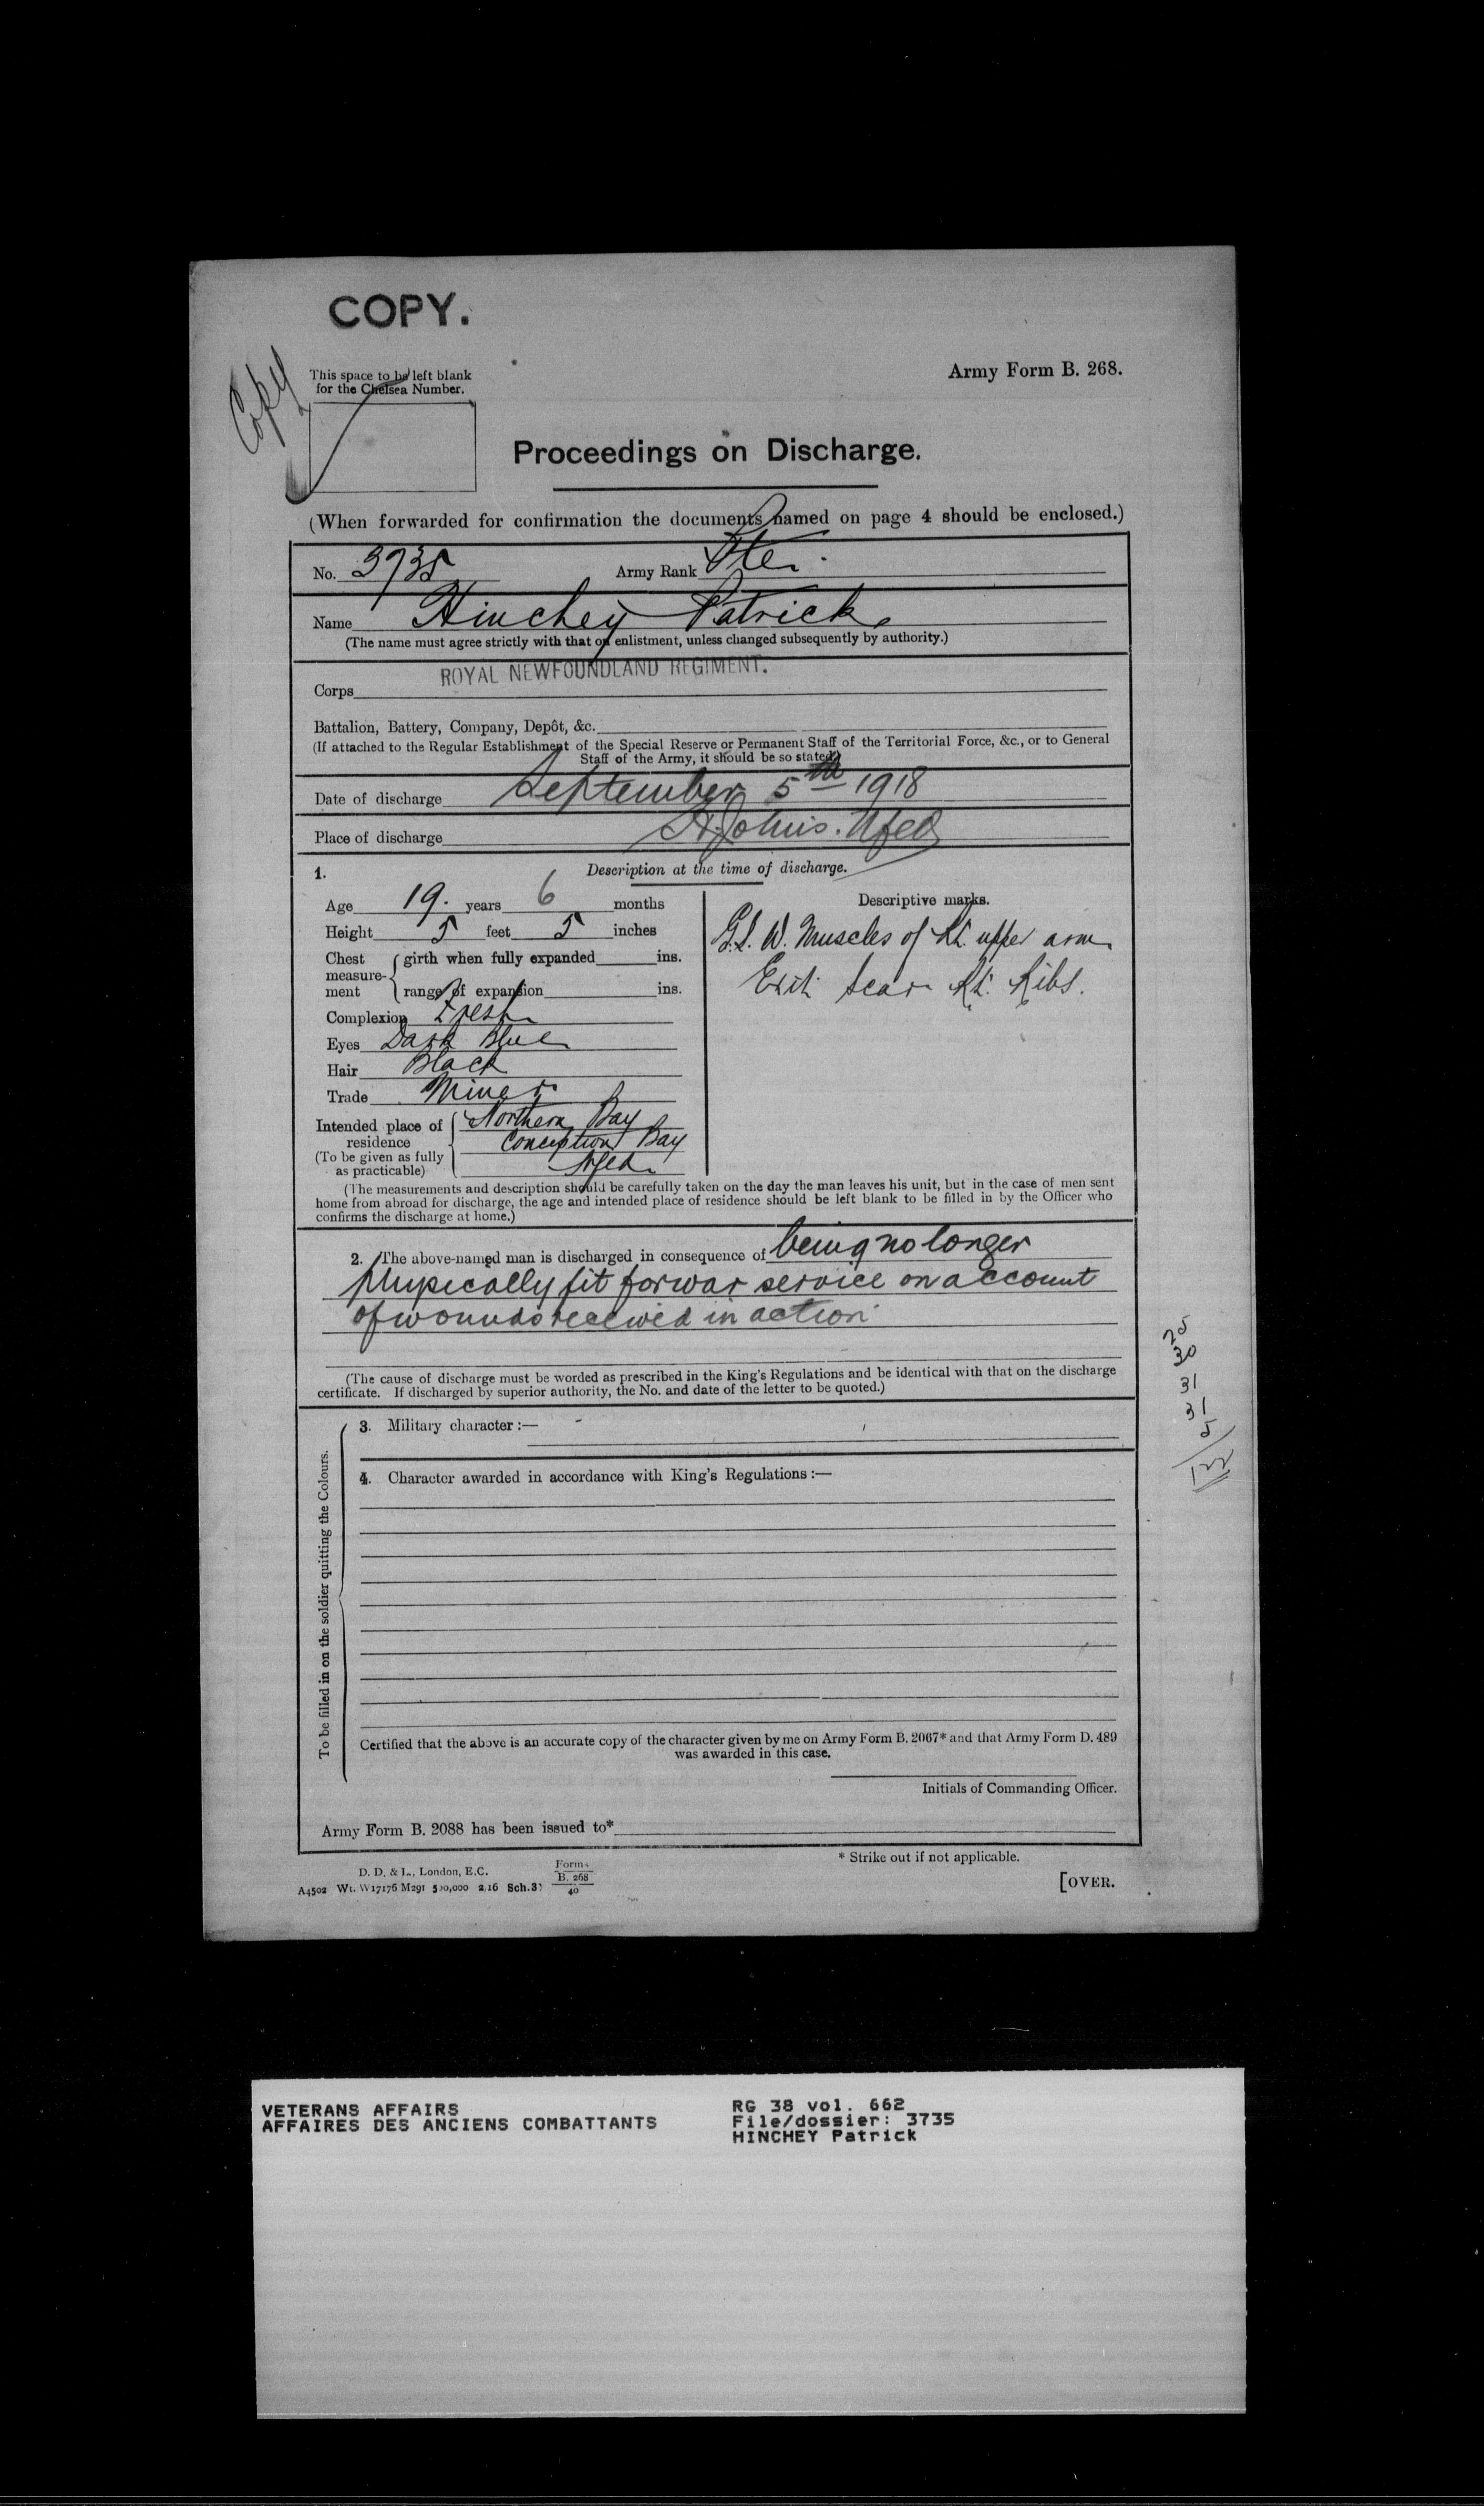 COPY.
Copy
This space to be left blank
for the Chelsea Number.
Army Form B. 268.
Proceedings on Discharge.
(When forwarded for confirmation the documents named on page 4 should be enclosed.)
No. 3735 Army Rank Pte.
Name Hinchey Patrick
(The name must agree strictly with that on enlistment, unless changed subsequently by authority.)
Corps ROYAL NEWFOUNDLAND REGIMENT.
Battalion, Battery, Company, Depôt, &c.
(If attached to the Regular Establishment of the Special Reserve or Permanent Staff of the Territorial Force, &c., or to General
Staff of the Army, it should be so stated.)
Date of discharge September 5th 1918
Place of discharge St. Johns. Nfld
1. Description at the time of discharge.
Age 19. years 6 months
Height 5 feet 5 inches
Chest measurement { girth when fully expanded ins.
range of expansion ins.
Complexion Fresh
Eyes Dark Blue
Hair Black
Trade Miner
Intended place of residence (To be given as fully as practicable) Northern Bay
Conception Bay
Nfld.
Descriptive marks.
G.S.W. Muscles of Rt. upper arm
Exit scar Rt. Ribs.
(The measurements and description should be carefully taken on the day the man leaves his unit, but in the case of men sent
home from abroad for discharge, the age and intended place of residence should be left blank to be filled in by the Officer who
confirms the discharge at home.)
2. The above-named man is discharged in consequence of being no longer
physically fit for war service on account
of wounds received in action
(The cause of discharge must be worded as prescribed in the King's Regulations and be identical with that on the discharge
certificate. If discharged by superior authority, the No. and date of the letter to be quoted.)
25
30
31
31
5
122
To be filled in on the soldier quitting the Colours.
3. Military character :—
4. Character awarded in accordance with King's Regulations :—
Certified that the above is an accurate copy of the character given by me on Army Form B. 2067* and that Army Form D. 489
was awarded in this case.
Initials of Commanding Officer.
Army Form B. 2088 has been issued to*
* Strike out if not applicable.
D. D. & L., London, E.C.
A4502 Wt. W17176 M291 500,000 2/16 Sch.37
Forms
B. 268
40
[OVER.
VETERANS AFFAIRS
AFFAIRES DES ANCIENS COMBATTANTS
RG 38 vol. 662
File/dossier: 3735
HINCHEY Patrick